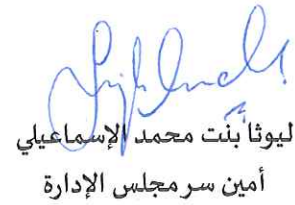 ليوثا بنت محمد الإسماعيلي
أمين سر مجلس الإدارة